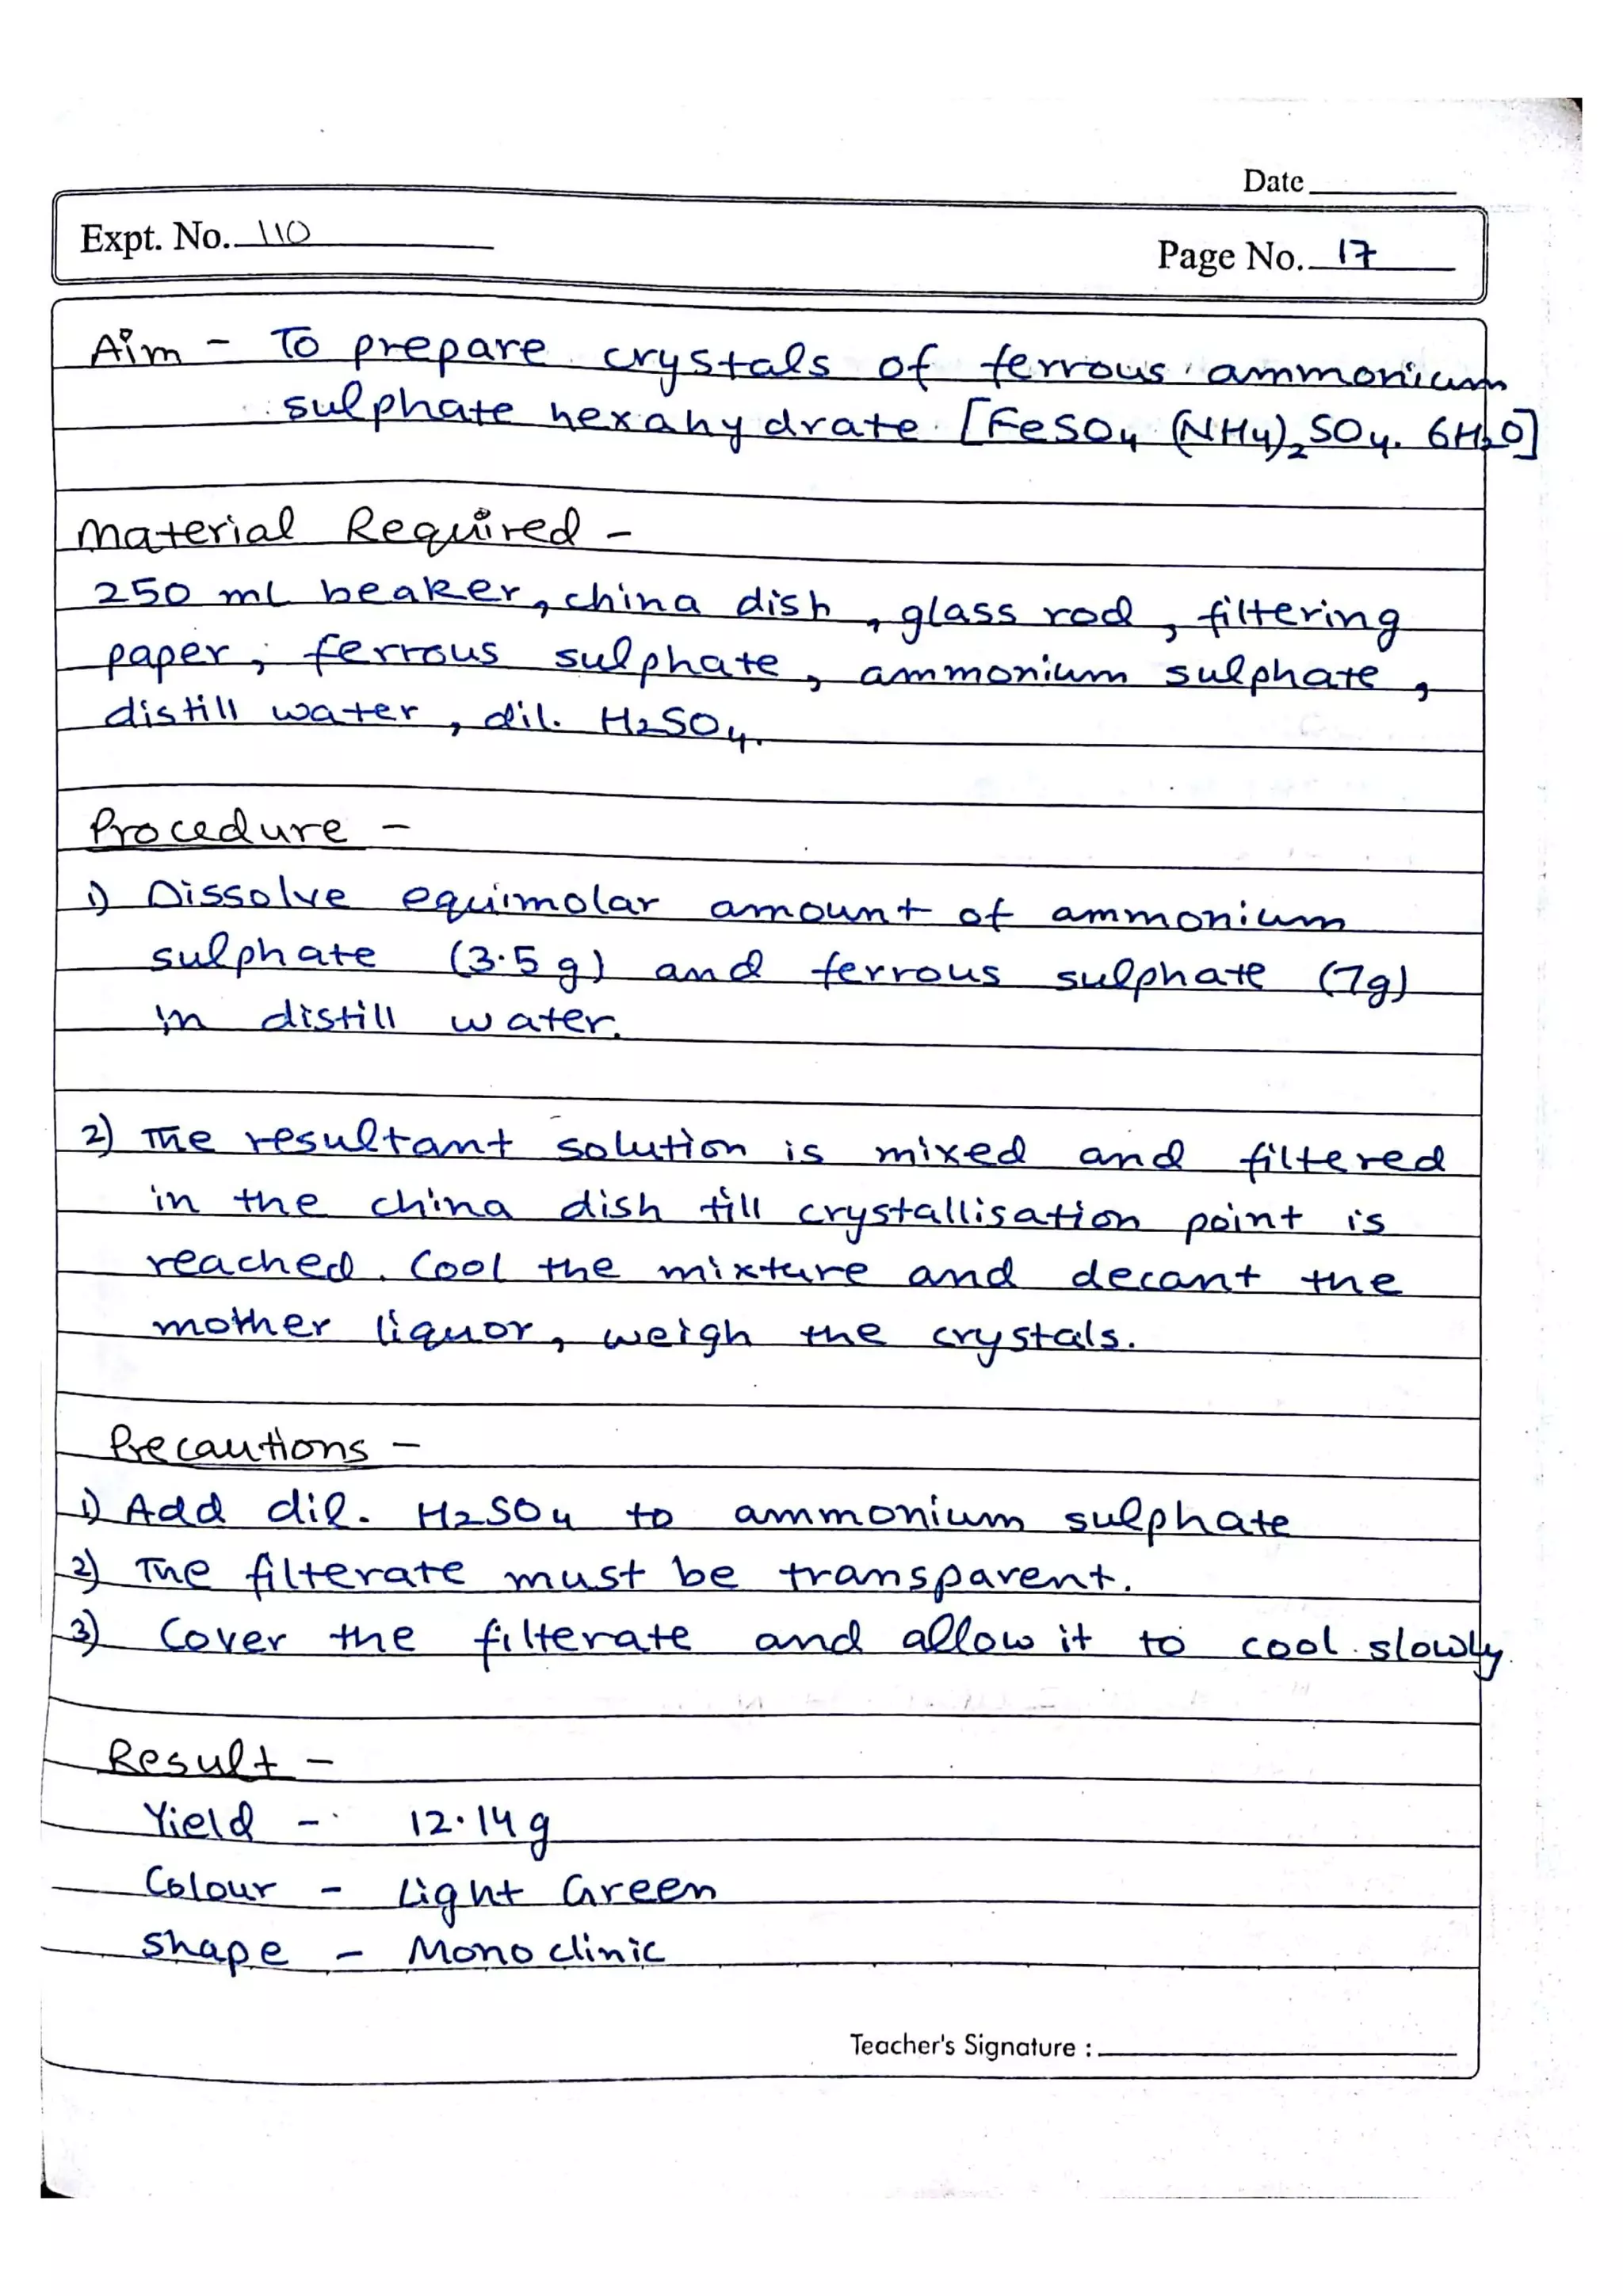 Date
Expt. No. 110
Page No. 17
Aim - To prepare crystals of ferrous ammonium
sulphate hexahydrate [FeSO4 (NH4)2 SO4. 6H2O]
Material Required -
250 ml beaker, china dish, glass rod, filtering
paper, ferrous sulphate, ammonium sulphate,
distill water, dil. H2SO4.
Procedure -
1) Dissolve equimolar amount of ammonium
sulphate (3.5g) and ferrous sulphate (7g)
in distill water.
2) The resultant solution is mixed and filtered
in the china dish till crystallisation point is
reached. Cool the mixture and decant the
mother liquor, weigh the crystals.
Precautions -
1) Add dil. H2SO4 to ammonium sulphate
2) The filterate must be transparent.
3) Cover the filterate and allow it to cool slowly
Result -
Yield - 12.14g
Colour - Light Green
Shape - Monoclinic
Teacher's Signature :